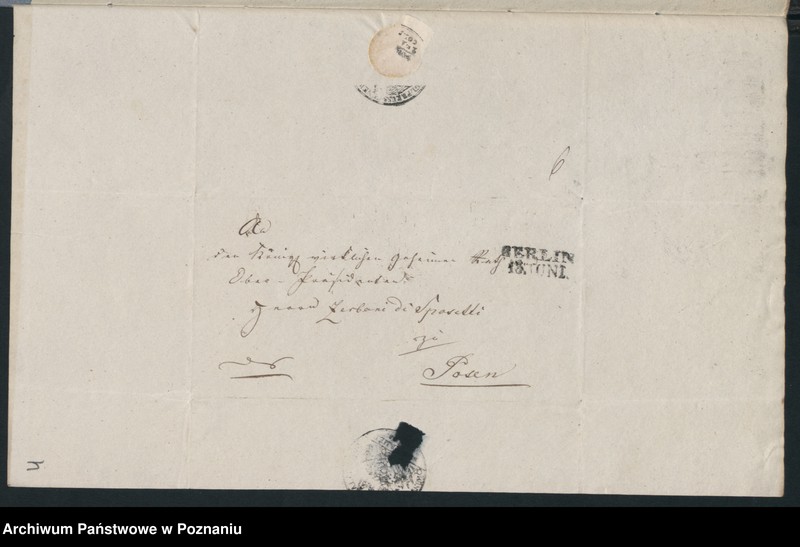 6
An
den Königl wirklichen geheimen Rath
Ober-Präsidenten
Herrn Zerboni di Sposetti
zu
Posen
BERLIN
18 JUNI
Archiwum Państwowe w Poznaniu